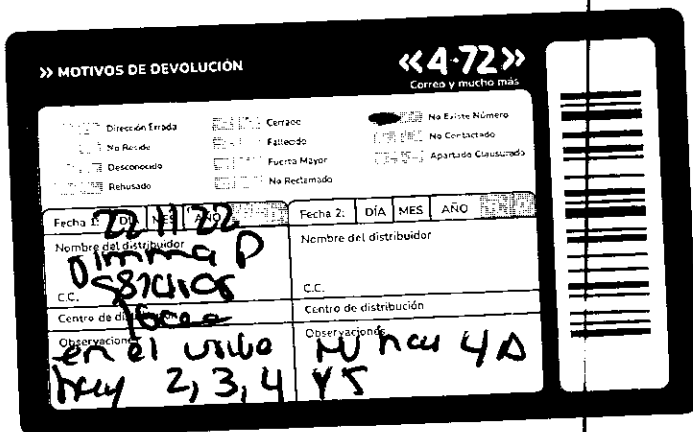 >> MOTIVOS DE DEVOLUCIÓN
<<4-72>>
Correo y mucho más
Dirección Errada
No Reside
Desconocido
Rehusado
Cerrado
Fallecido
Fuerza Mayor
No Reclamado
No Existe Número
No Contactado
Apartado Clausurado
Fecha 1: DÍA MES AÑO
22 11 22
Nombre del distribuidor
C.C.
Centro de
Observaciones
en el
hay 2, 3, 4
Fecha 2: DÍA MES AÑO
Nombre del distribuidor
C.C.
Centro de distribución
Observaciones
hay 4 A
Y 5